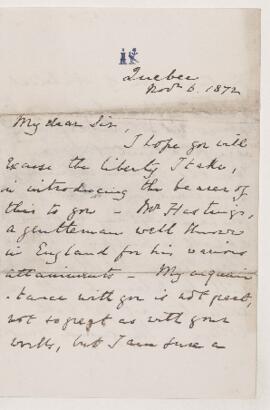 Quebec
Novr. 6. 1872
My dear Sir,
I hope you will
excuse the liberty I take,
in introducing the bearer of
this to you - Mr. Hastings,
a gentleman well known
in England for his various
attainments - My acquain
-tance with you is not great,
not so great as with your
works, but I am sure a